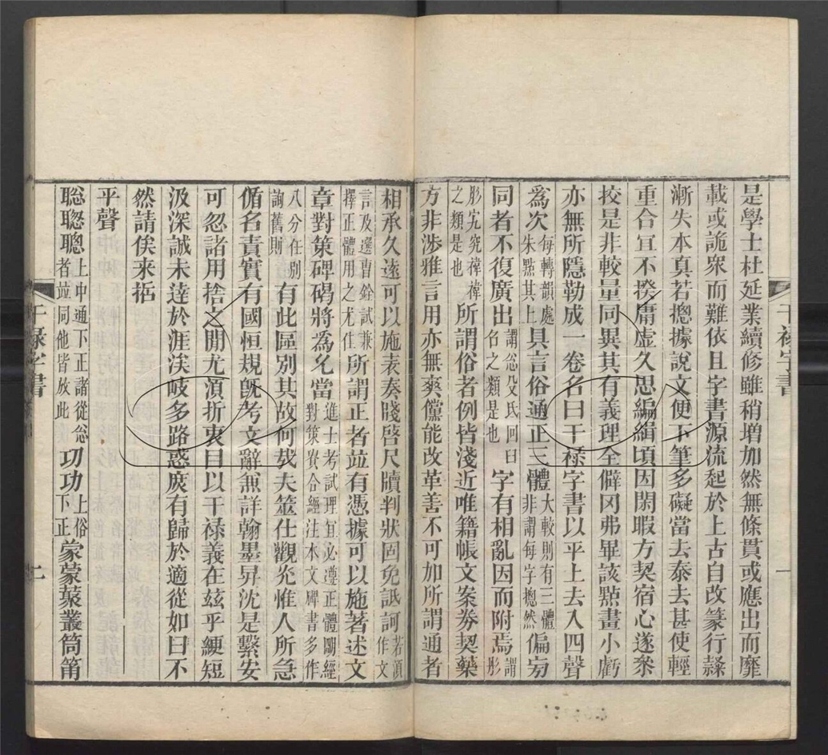 是學士杜延業續修雖稍增加然無條貫或應出而靡
載或詭眾而難依且字書源流起於上古自改篆行隸
漸失本真若摠據說文便下筆多礙當去泰去甚使輕
重合宜不揆庸虛久思編緝頃因閑暇方契宿心遂叅
挍是非較量同異其有義理全僻罔弗畢該點畫小虧
亦無所隱勒成一卷名曰干祿字書以平上去入四聲
爲次每轉韻處朱點其上具言俗通正三體大較則有三體非謂每字揔然偏旁
同者不復廣出謂忩殳氏回臼之類是也字有相亂因而附焉謂彤
肜宄究禕褘之類是也所謂俗者例皆淺近唯籍帳文案券契藥
方非涉雅言用亦無爽儻能改革善不可加所謂通者
干祿字書
一
相承久遠可以施表奏牋啓尺牘判狀固免詆訶若須作文
言及選曹銓試兼擇正體用之尤佳所謂正者竝有憑據可以施著述文
章對策碑碣將爲允當進士考試理宜必遵正體明經對策貴合經注本文碑書多作
八分任別詢舊則有此區別其故何哉夫筮仕觀光惟人所急
循名責實有國恒規既考文辭兼詳翰墨昇沈是繫安
可忽諸用捨之閒尤須折衷目以干祿義在兹乎綆短
汲深誠未達於涯涘岐多路惑庶有歸於適從如曰不
然請俟來哲
平聲
聡聦聰上中通下正諸從忩者竝同他皆放此㓛功上俗下正䝉蒙䕺叢筒筩
干祿字書
二